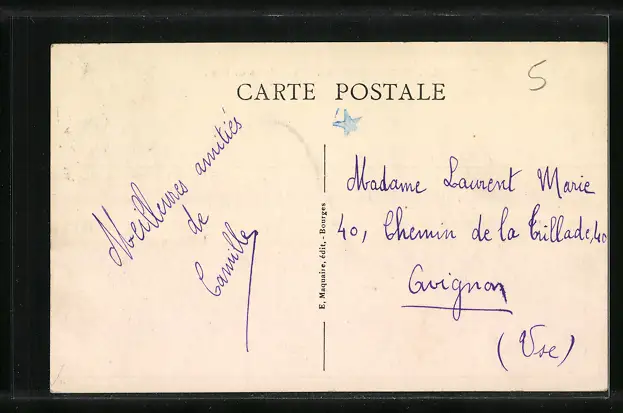 CARTE POSTALE
5
Meilleures amitiés
de
Camille
E. Maquaire, édit. - Bourges
Madame Laurent Marie
40, Chemin de la Trillade, 40
Avignon
(Vse)